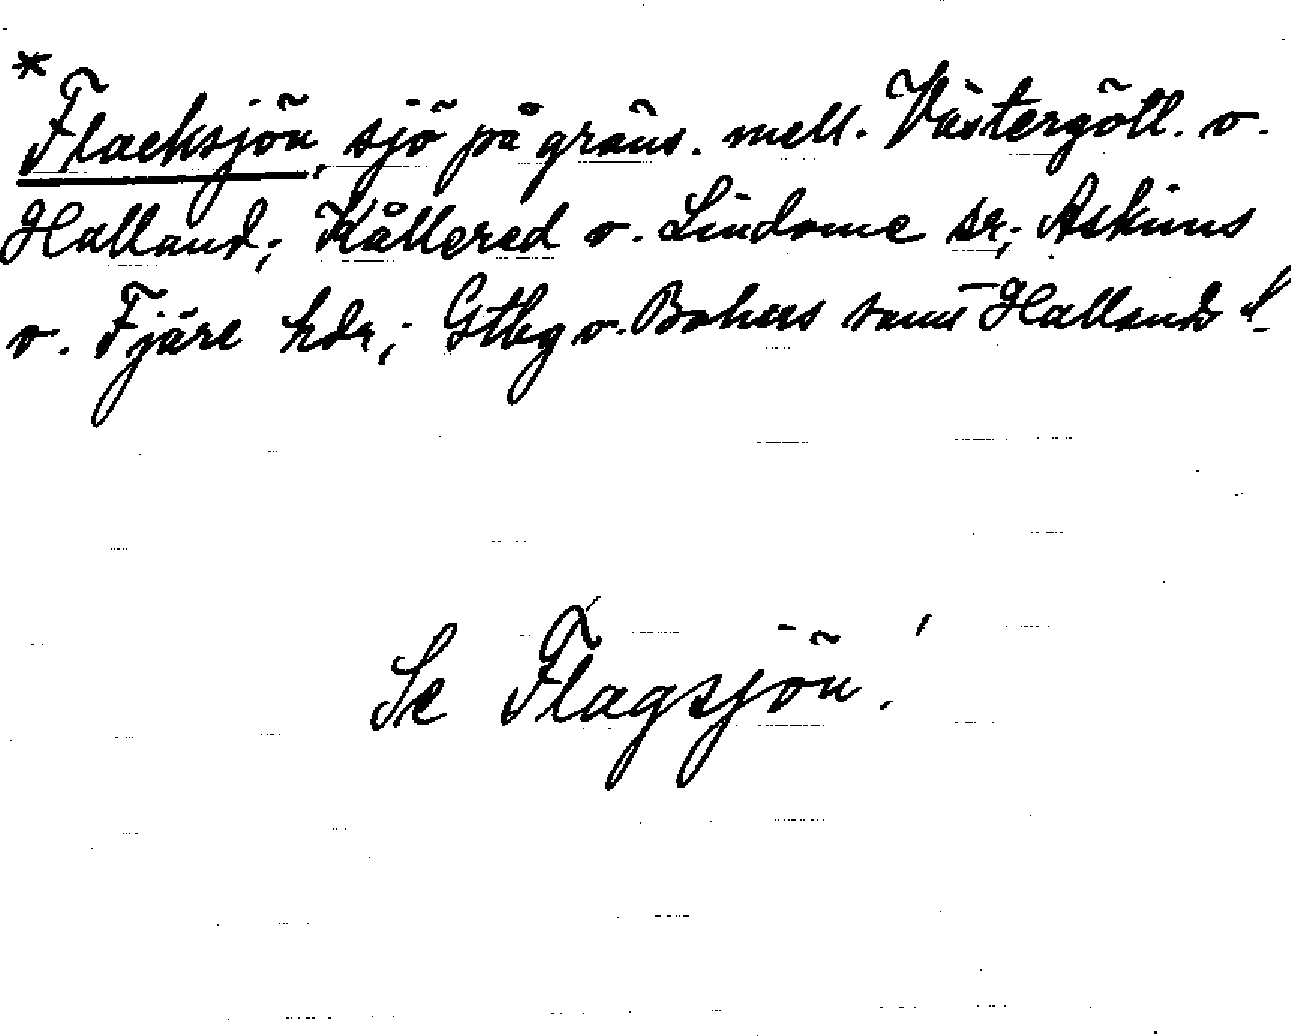 *
Flacksjön, sjö på gräns. mell. Västergötl. o.
Halland; Kållered o. Lindome sr; Askims
o. Fjäre hdr; Gtbg o. Bohus samt Hallands l.
Se Flagsjön!